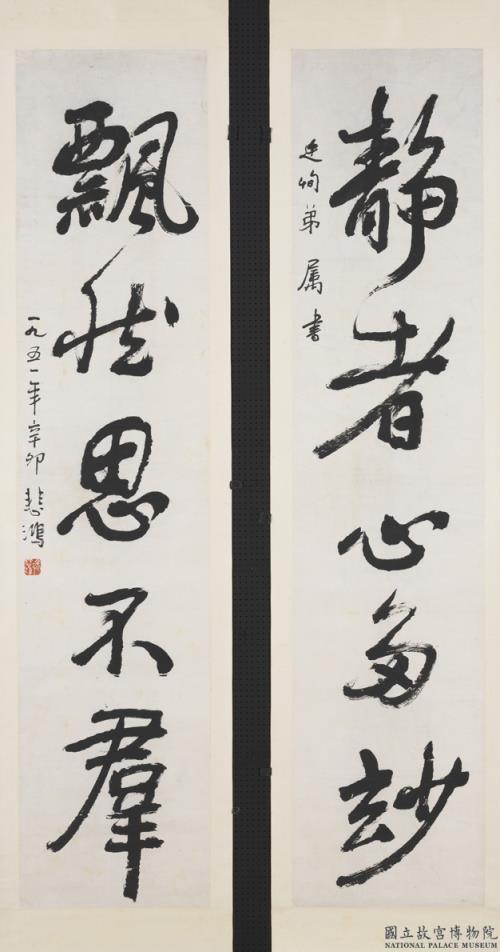 静者心多玅
恂弟属書
飄然思不羣
一九五一年辛卯 悲鴻
國立故宮博物院
NATIONAL PALACE MUSEUM